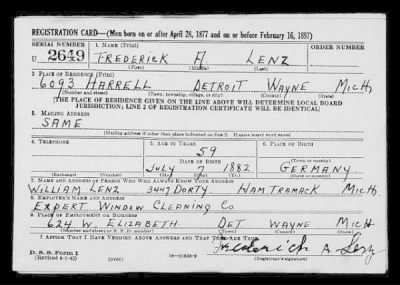 REGISTRATION CARD—(Men born on or after April 28, 1877 and on or before February 16, 1897)
SERIAL NUMBER 1. NAME (Print) ORDER NUMBER
U 2649 FREDERICK A. LENZ
(First) (Middle) (Last)
2. PLACE OF RESIDENCE (Print)
6093 HARRELL DETROIT WAYNE MICH
(Number and street) (Town, township, village, or city) (County) (State)
[THE PLACE OF RESIDENCE GIVEN ON THE LINE ABOVE WILL DETERMINE LOCAL BOARD
JURISDICTION; LINE 2 OF REGISTRATION CERTIFICATE WILL BE IDENTICAL]
3. MAILING ADDRESS
SAME
[Mailing address if other than place indicated on line 2. If same insert word same]
4. TELEPHONE 5. AGE IN YEARS 6. PLACE OF BIRTH
59
DATE OF BIRTH
JULY 7 1882 GERMANY
(Mo.) (Day) (Yr.) (State or country)
7. NAME AND ADDRESS OF PERSON WHO WILL ALWAYS KNOW YOUR ADDRESS
WILLIAM LENZ 3447 DORTY. HAMTRAMACK MICH
8. EMPLOYER'S NAME AND ADDRESS
EXPERT WINDOW CLEANING CO
9. PLACE OF EMPLOYMENT OR BUSINESS
624 W. ELIZABETH DET WAYNE MICH
(Number and street or R. F. D. number) (Town) (County) (State)
I AFFIRM THAT I HAVE VERIFIED ABOVE ANSWERS AND THAT THEY ARE TRUE.
Frederick A Lenz
D. S. S. Form 1
(Revised 4-1-42) (over) (Registrant's signature)